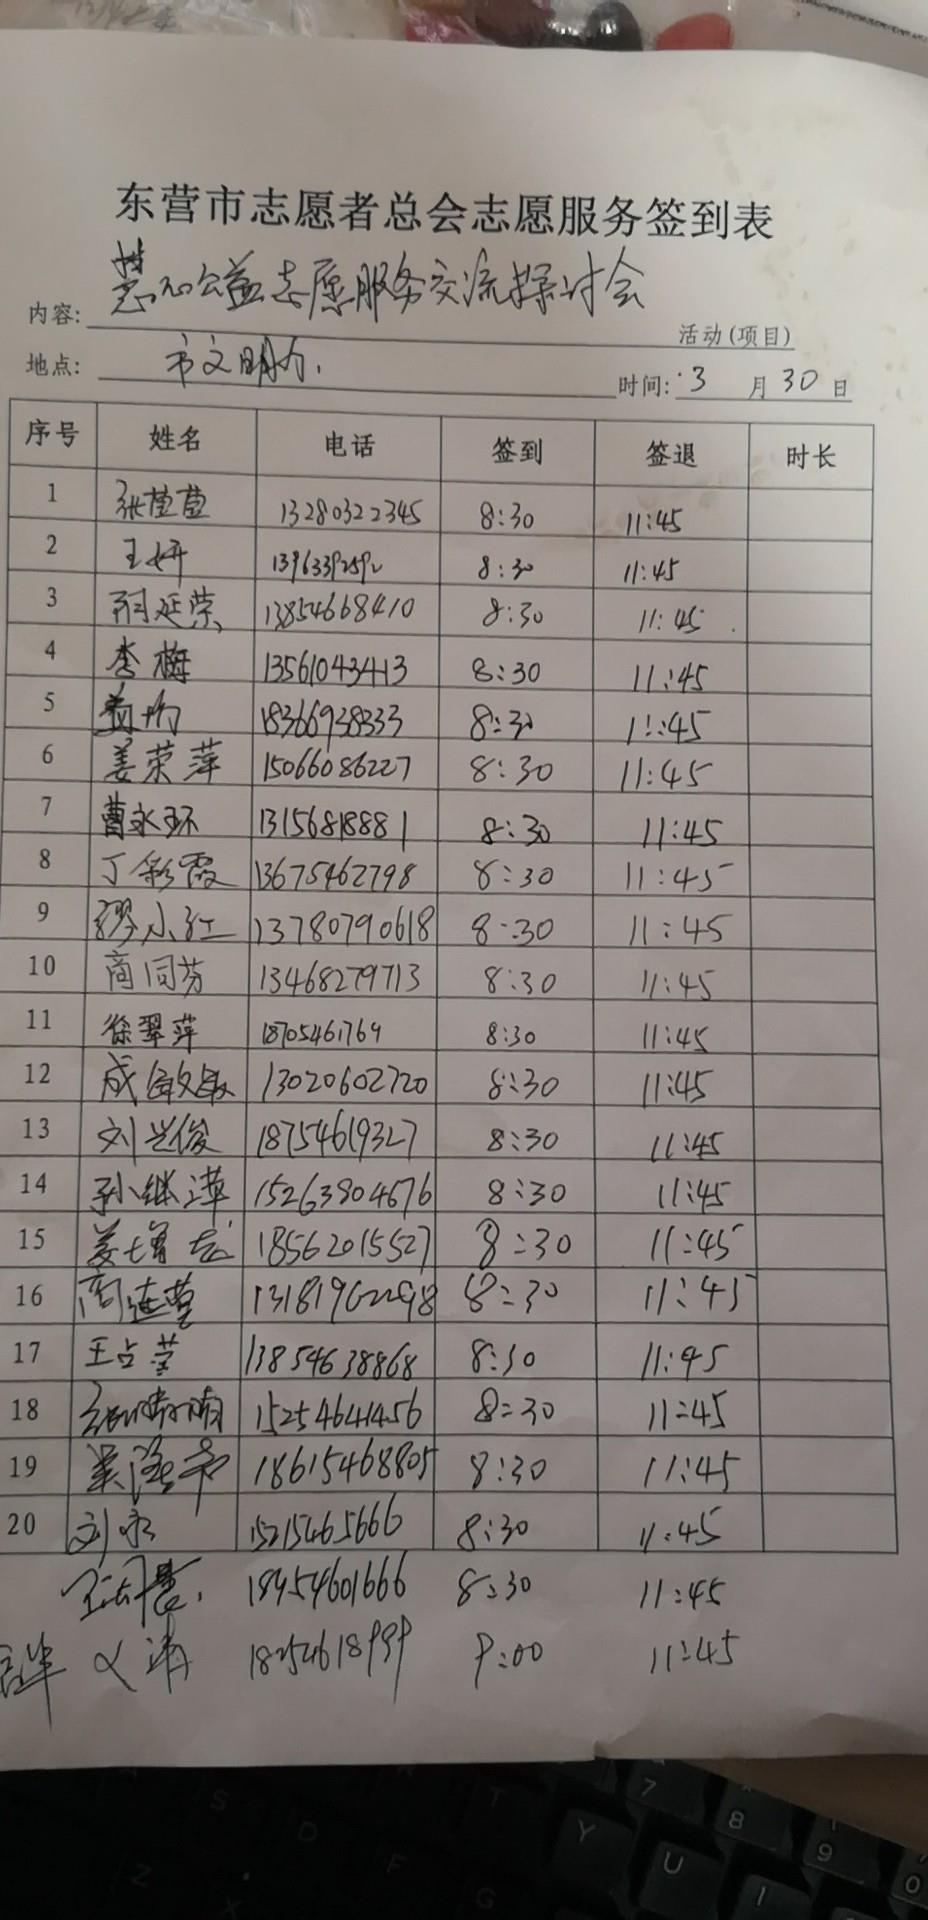 东营市志愿者总会志愿服务签到表
内容: 慧心公益志愿服务交流探讨会 活动(项目)
地点: 市文明办. 时间: 3 月 30 日
序号 姓名 电话 签到 签退 时长
1 张萱萱 13280322345 8:30 11:45
2 王妍 13963392592 8:30 11:45
3 延荣 13854668410 8:30 11:45
4 李梅 13561043413 8:30 11:45
5 18366938333 8:30 11:45
6 姜荣萍 15066086227 8:30 11:45
7 曹永环 13156818881 8:30 11:45
8 丁彩霞 13675462798 8:30 11:45
9 缪小红 13780790618 8:30 11:45
10 商同芬 13468279713 8:30 11:45
11 徐翠萍 18705461769 8:30 11:45
12 成敏敏 13020602720 8:30 11:45
13 刘兰俊 18754619327 8:30 11:45
14 孙继萍 15263804676 8:30 11:45
15 姜增志 18562015527 8:30 11:45
16 商莲莹 8:30 11:45
17 王占莹 13854638868 8:30 11:45
18 张晴晴 15254641456 8:30 11:45
19 18615468805 8:30 11:45
20 刘永 15215465666 8:30 11:45
18954601666 8:30 11:45
9:00 11:45